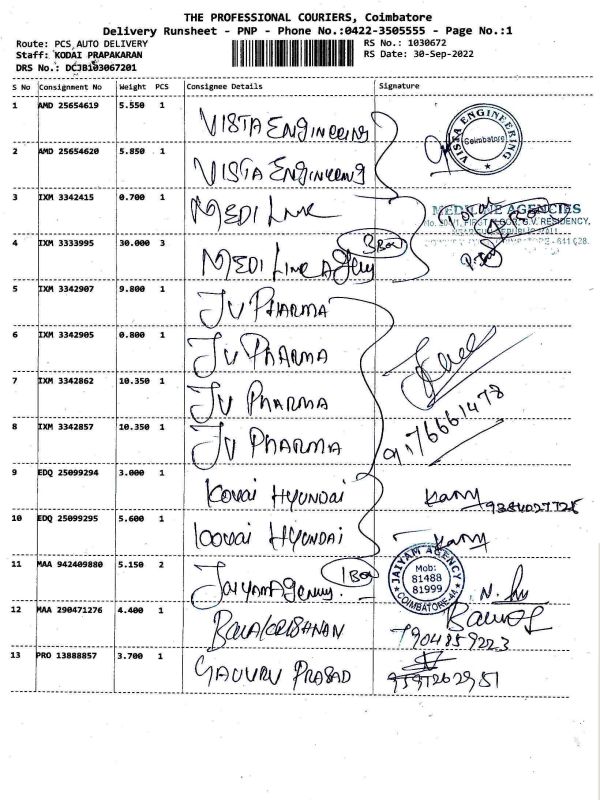 THE PROFESSIONAL COURIERS, Coimbatore
Delivery Runsheet - PNP - Phone No.:0422-3505555 - Page No.:1
Route: PCS AUTO DELIVERY RS No.: 1030672
Staff: KODAI PRAPAKARAN RS Date: 30-Sep-2022
DRS No.: DCJB103067201
S No Consignment No Weight PCS Consignee Details Signature
1 AMD 25654619 5.550 1 VISTA Engineering
VISTA ENGINEERING Coimbatore
2 AMD 25654620 5.850 1 VISTA Engineering
3 IXM 3342415 0.700 1 MEDI Line
MEDILINE AGENCIES
4 IXM 3333995 30.000 3 MEDI Line Agency 3 Box
5 IXM 3342907 9.800 1 JV PHARMA
6 IXM 3342905 0.800 1 JV PHARMA
7 IXM 3342862 10.350 1 JV PHARMA
9176661478
8 IXM 3342857 10.350 1 JV PHARMA
9 EDQ 25099294 3.000 1 Kovai Hyundai
10 EDQ 25099295 5.600 1 Kovai Hyundai
11 MAA 942409880 5.150 2 Jaiyam Agency. 1 Box
JAIYAM AGENCY Mob: 81488 81999 COIMBATORE-44
12 MAA 290471276 4.400 1 BALAKRISHNAN
7904859223
13 PRO 13888857 3.700 1 GAURU PRASAD